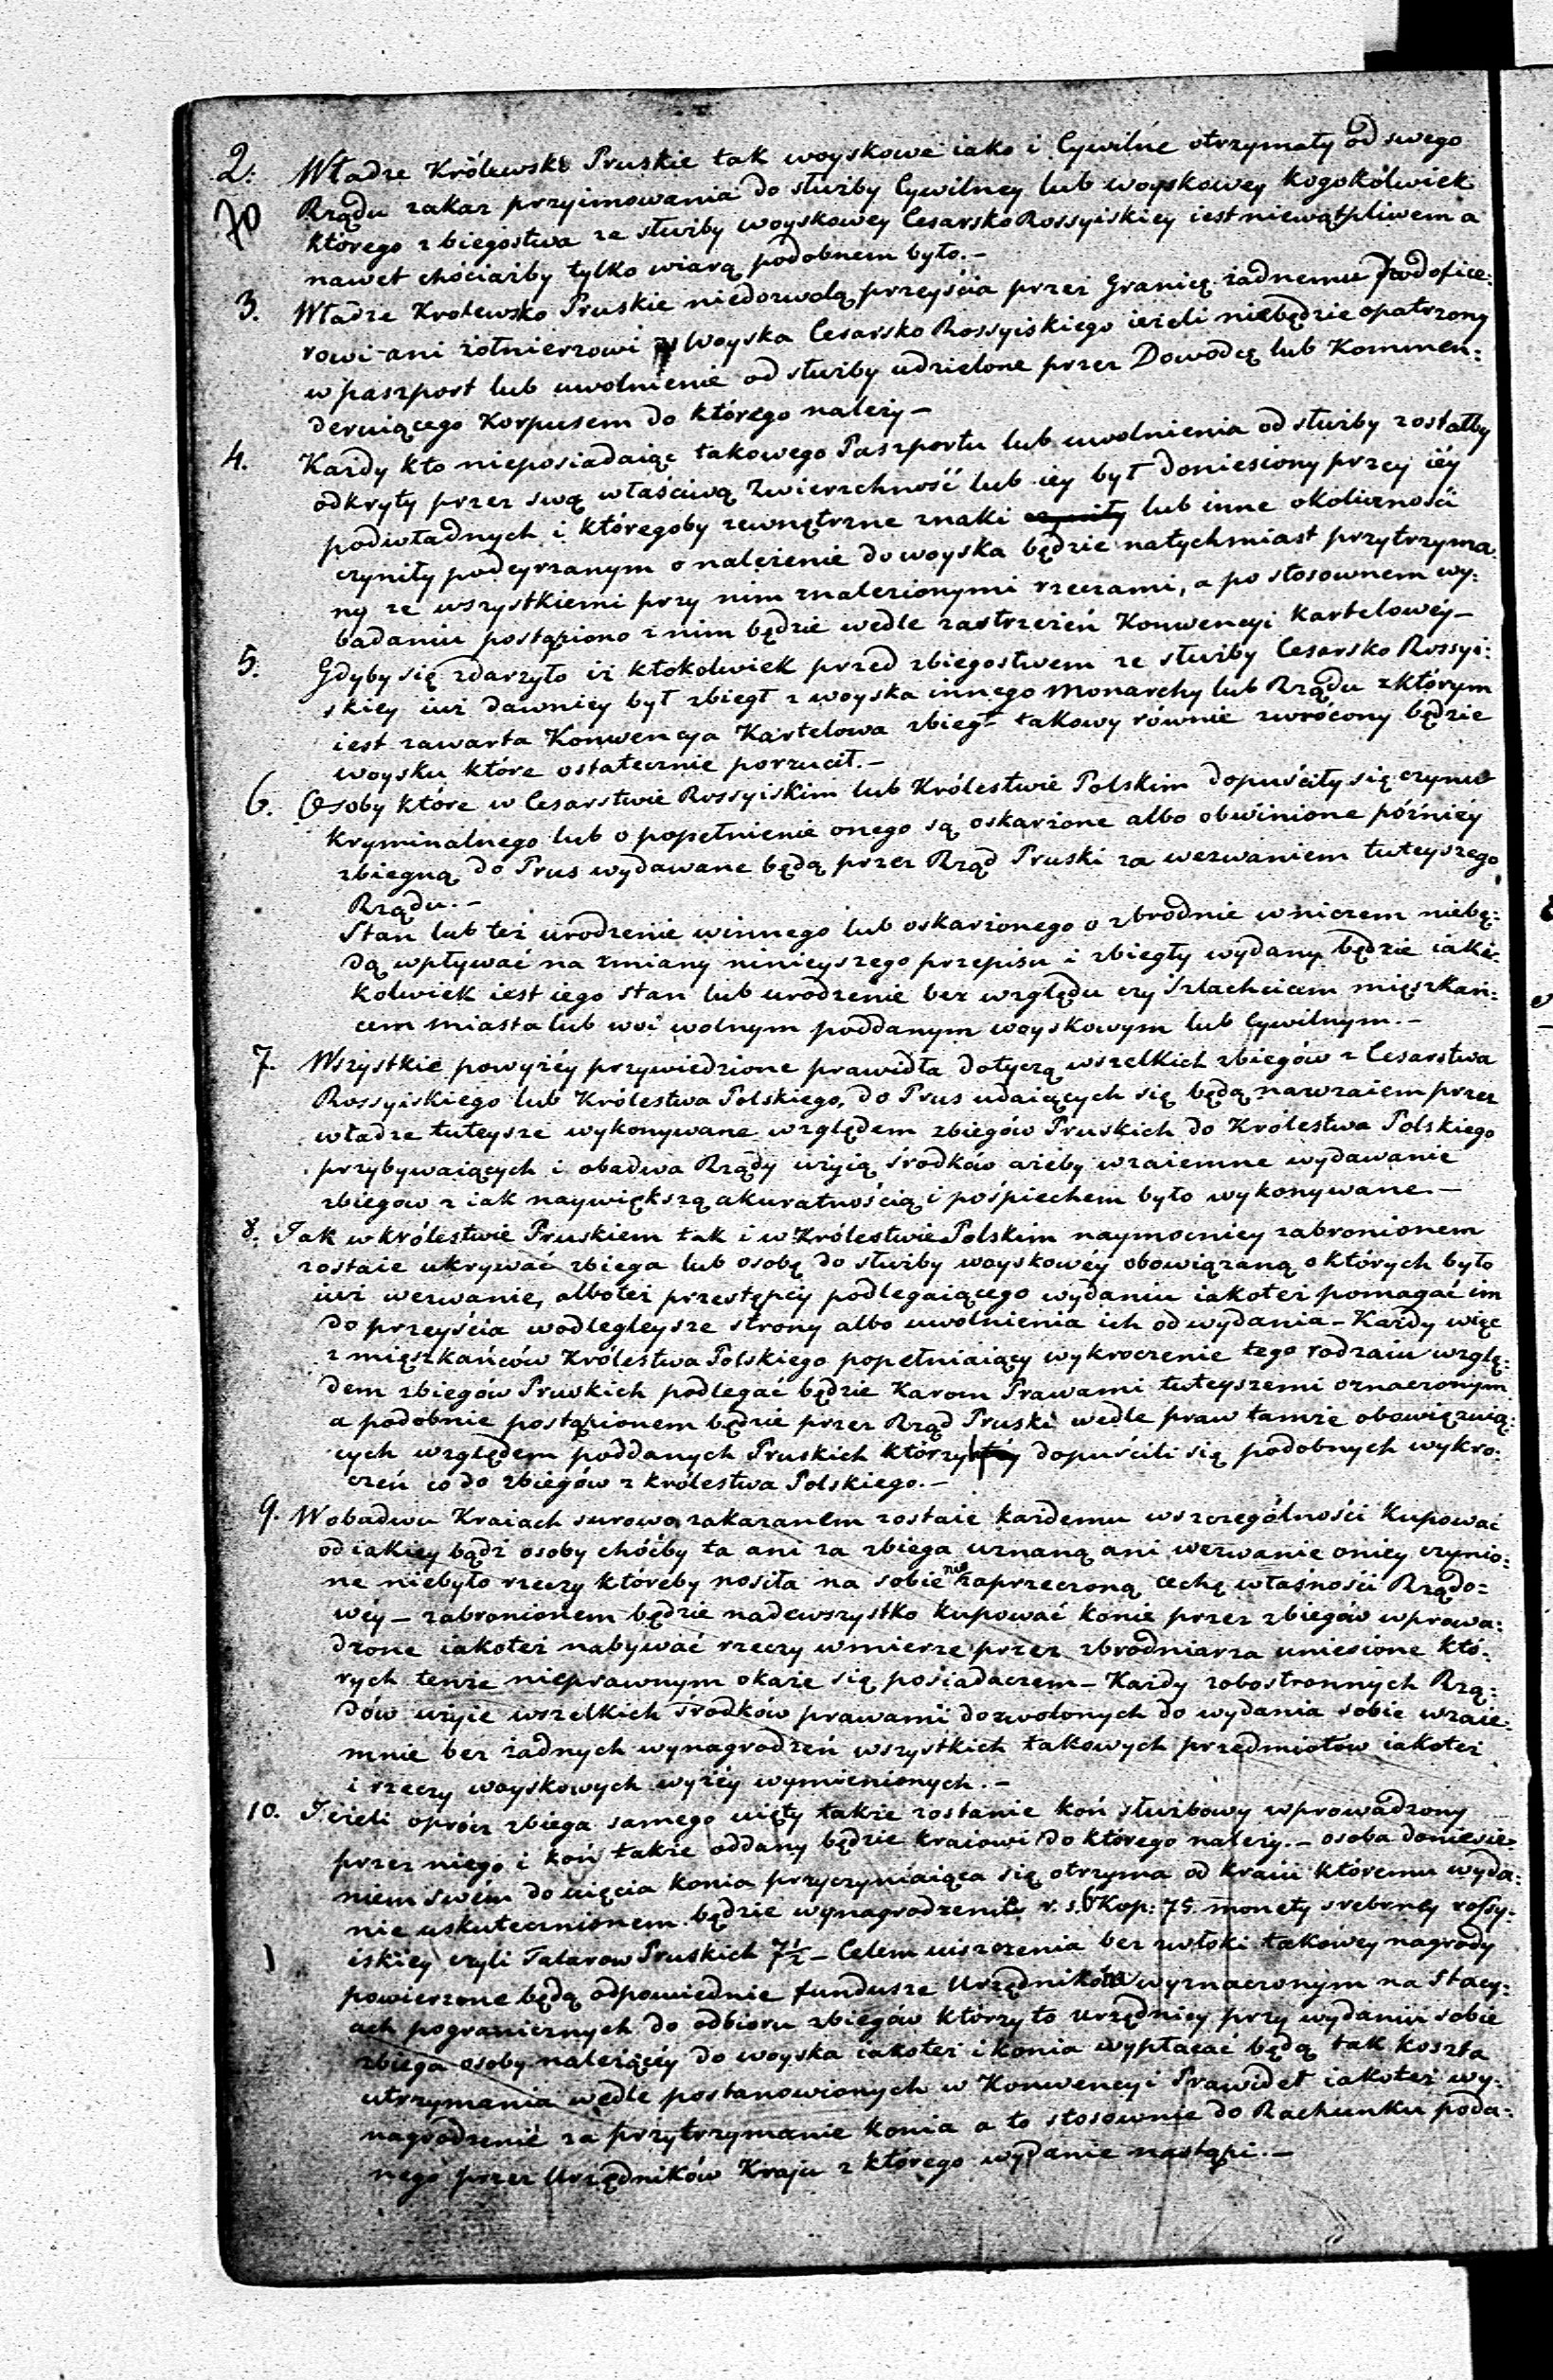 2. Władze Królewsko Pruskie tak woyskowe iako i Cywilne otrzymały od swego
70 Rządu zakaz przyimowania do służby Cywilney lub woyskowey kogokólwiek
którego zbiegostwa ze służby woyskowey Cesarsko Rossyiskiey iest niewątpliwem a
nawet chóciażby tylko wiarą podobnem było.-
3. Władze Krolewsko Pruskie niedozwolą przeyścia przez Granicę żadnemu Podofice:
rowi ani żołnierzowi z Woyska Cesarsko Rossyiskiego ieżeli niebędzie opatrzony
w paszport lub uwolnienie od służby udzielone przez Dowodcę lub Kommen:
deruiącego Korpusem do którego należy-
4. Każdy kto nieposiadaiąc takowego Paszportu lub uwolnienia od służby zostałby
odkryty przez swą właściwą Zwierzchność lub iey był doniesiony przez iéy
podwładnych i któregoby zewnętrzne znaki czyniły lub inne okoliczności
czyniły podeyrzanym o należenie do woyska będzie natychmiast przytrzyma:
ny ze wszystkiemi przy nim znalezionymi rzeczami, a po stosownem wy:
badaniu postąpiono z nim będzie wedle zastrzeżeń Konwencyi Kartelowey-
5. Gdyby się zdarzyło iż ktokolwiek przed zbiegostwem ze służby Cesarsko Rossyi:
skiey iuż dawniey był zbiegł z woyska innego Monarchy lub Rządu z którym
iest zawarta Konwencya Kartelowa zbieg takowy równie zwrócony będzie
woysku które ostatecznie porzucił.-
6. Osoby które w Cesarstwie Rossyiskim lub Królestwie Polskim dopuściły się czynu
kryminalnego lub o popełnienie onego są oskarżone albo obwinione późniéy
zbiegną do Prus wydawane będą przez Rząd Pruski za wezwaniem tuteyszego
Rządu.-
Stan lub też urodzenie winnego lub oskarżonego o zbrodnie w niczem niebę:
dą wpływać na zmiany ninieyszego przepisu i zbiegły wydany będzie iaki:
kolwiek iest iego stan lub urodzenie bez względu czy Szlachcicem mięszkań:
cem miasta lub wsi wolnym poddanym woyskowym lub Cywilnym.-
7. Wszystkie powyżéy przywiedzione prawidła dotyczą wszelkich zbiegów z Cesarstwa
Rossyiskiego lub Królestwa Polskiego, do Prus udaiących się będą nawzaiem przez
władze tuteysze wykonywane względem zbiegów Pruskich do Królestwa Polskiego
przybywaiących i obadwa Rządy użyią środków ażeby wzaiemne wydawanie
zbiegów z iak naywiększą akuratnością i pośpiechem było wykonywane.-
8. Tak w królestwie Pruskiem tak i w Królestwie Polskim naymocniey zabronionem
zostaie ukrywać zbiega lub osobę do służby woyskowéy obowiązaną o których było
iuż wezwanie, albo też przestępcy podlegaiącego wydaniu iakoteż pomagać im
do przeyścia w odległeysze strony albo uwolnienia ich od wydania - Każdy więc
z mięszkańców Królestwa Polskiego popełniaiący wykroczenie tego rodzaiu wzglę:
dem zbiegów Pruskich podlegać będzie Karom Prawami tuteyszemi oznaczonym
a podobnie postąpionem będzie przez Rząd Pruski wedle praw tamże obowięzuią:
cych względem poddanych Pruskich którzy dopuścili się podobnych wykro:
czeń co do zbiegów z królestwa Polskiego.-
9. W obadwu Kraiach surowo zakazanem zostaie każdemu w szczególności Kupować
od iakiey bądź osoby chóćby ta ani za zbiega uznaną ani wezwanie oniey czynio:
ne niebyło rzeczy któreby nosiła na sobie nie zaprzeczoną cechę własności Rządo:
wéy - zabronionem będzie nadewszystko kupować konie przez zbiegów wprowa:
dzone iakoteż nabywać rzeczy w mierze przez zbrodniarza uniesione któ:
rych tenże nieprawnym okaże się posiadaczem - Każdy z obostronnych Rzą:
dów użyie wszelkich środków prawami dozwolonych do wydania sobie wzaie:
mnie bez żadnych wynagrodzeń wszystkich takowych przedmiotów iakoteż
i rzeczy woyskowych wyżéy wymienionych.-
10. Jeżeli oprócz zbiega samego uięty także zostanie koń służbowy wprowadzony
przez niego i koń także oddany będzie kraiowi do którego należy.- osoba doniesie:
niem swém do uięcia konia przyczyniaiąca się otrzyma od kraiu któremu wyda:
nie uskutecznionem będzie wynagrodzenie r. s. 6 Kop: 75. monety srebrnéy rossy:
iskiey czyli Talarow Pruskich 7½ - Celem uiszczenia bez zwłoki takówey nagrody
powierzone będą odpowiednie fundusze Urzędnikom wyznaczonym na Stacy:
ach pogranicznych do odbioru zbiegów którzy to urzędnicy przy wydaniu sobie
zbiega osoby należącéy do woyska iakoteż i konia wypłacać będą tak koszta
utrzymania wedle postanowionych w Konwencyi Prawideł iakoteż wy:
nagrodzenie za przytrzymanie konia a to stosownie do Rachunku poda:
nego przez Urzędników Kraju z którego wydanie nastąpi.-